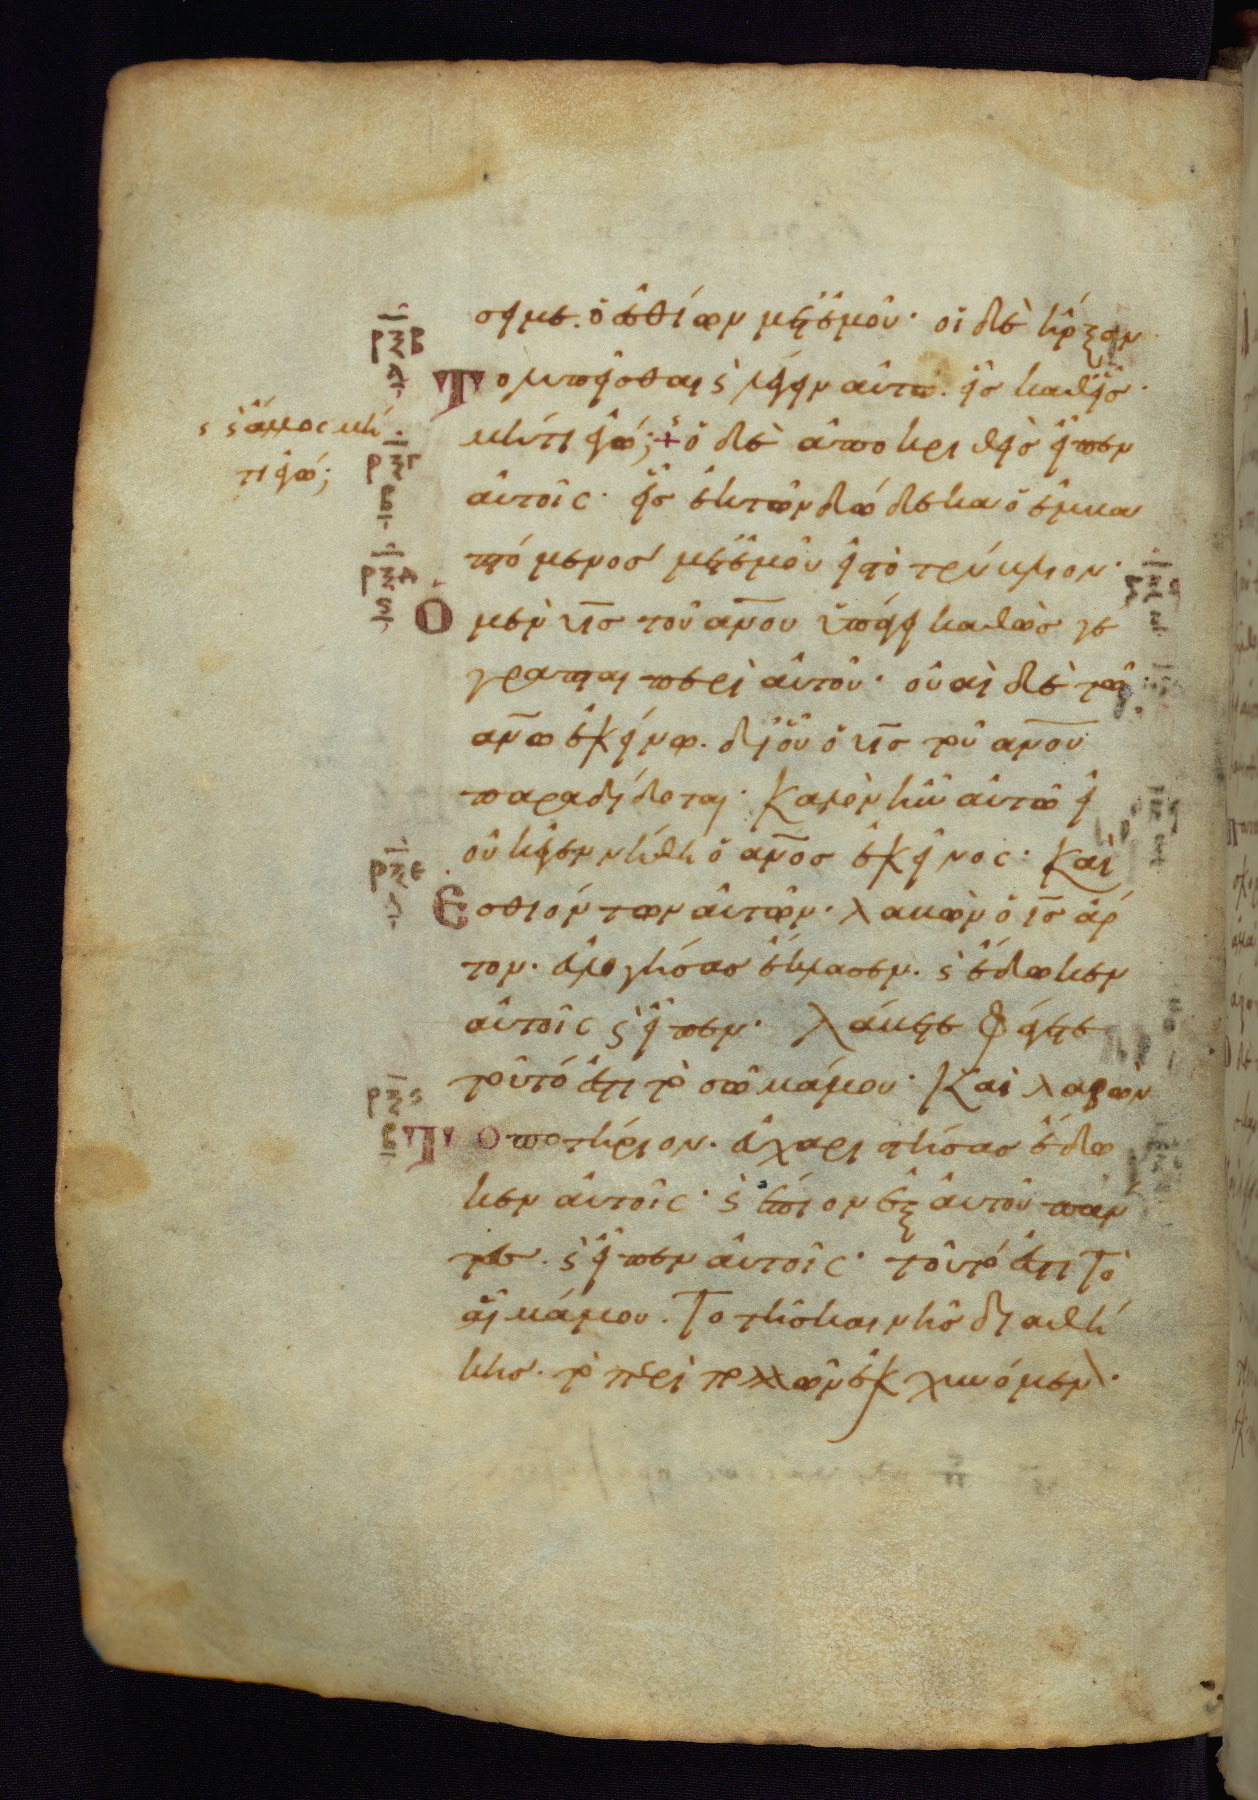 σει με. ὁ ἐσθίων μετ' ἐμοῦ· οἱ δὲ ἤρξαν
Το λυπεῖσθαι ϛ λέγειν αὐτῶ. εἷς καθεῖς·
μήτι ἐγώ; + ὁ δὲ ἀποκριθεὶς εἶπεν
ϛ ἄλλος μή
τι ἐγώ;
αὐτοῖς· εἷς ἐκ τῶν δώδεκα ὁ ἐμβα
πτόμενος μετ' ἐμοῦ εἰς τὸ τρύβλιον·
Ὁ μὲν υ̅ς̅ τοῦ α̅ν̅ου ὑπάγει καθὼς γέ
γραπται περὶ αὐτοῦ· οὐαὶ δὲ τῶ
α̅ν̅ω ἐκείνω. δι' οὗ ὁ υ̅ς̅ τοῦ α̅ν̅ου
παραδίδοται· Καλὸν ἦν αὐτῶ εἰ
οὐκ ἐγεννήθη ὁ α̅ν̅ος ἐκεῖνος· Καὶ
Εσθιόντων αὐτῶν· λαβὼν ὁ ι̅ς̅ ἄρ
τον. εὐλογήσας ἔκλασεν. ϛ ἔδωκεν
αὐτοῖς ϛ εἶπεν· λάβετε φάγετε
τοῦτό ἐστι τὸ σῶμά μου· Καὶ λαβὼν
Το ποτήριον. εὐχαριστήσας ἔδω
κεν αὐτοῖς· ϛ ἔπιον ἐξ αὐτοῦ πάν
τες. ϛ εἶπεν αὐτοῖς· τοῦτό ἐστι Τὸ
αἷμά μου. Το τῆς καινῆς διαθή
κης. τὸ περὶ πολλῶν ἐκχυνόμεν·
ρξβ
δ
ρξγ
β
ρξδ
ϛ
ρξε
ρξϛ
β